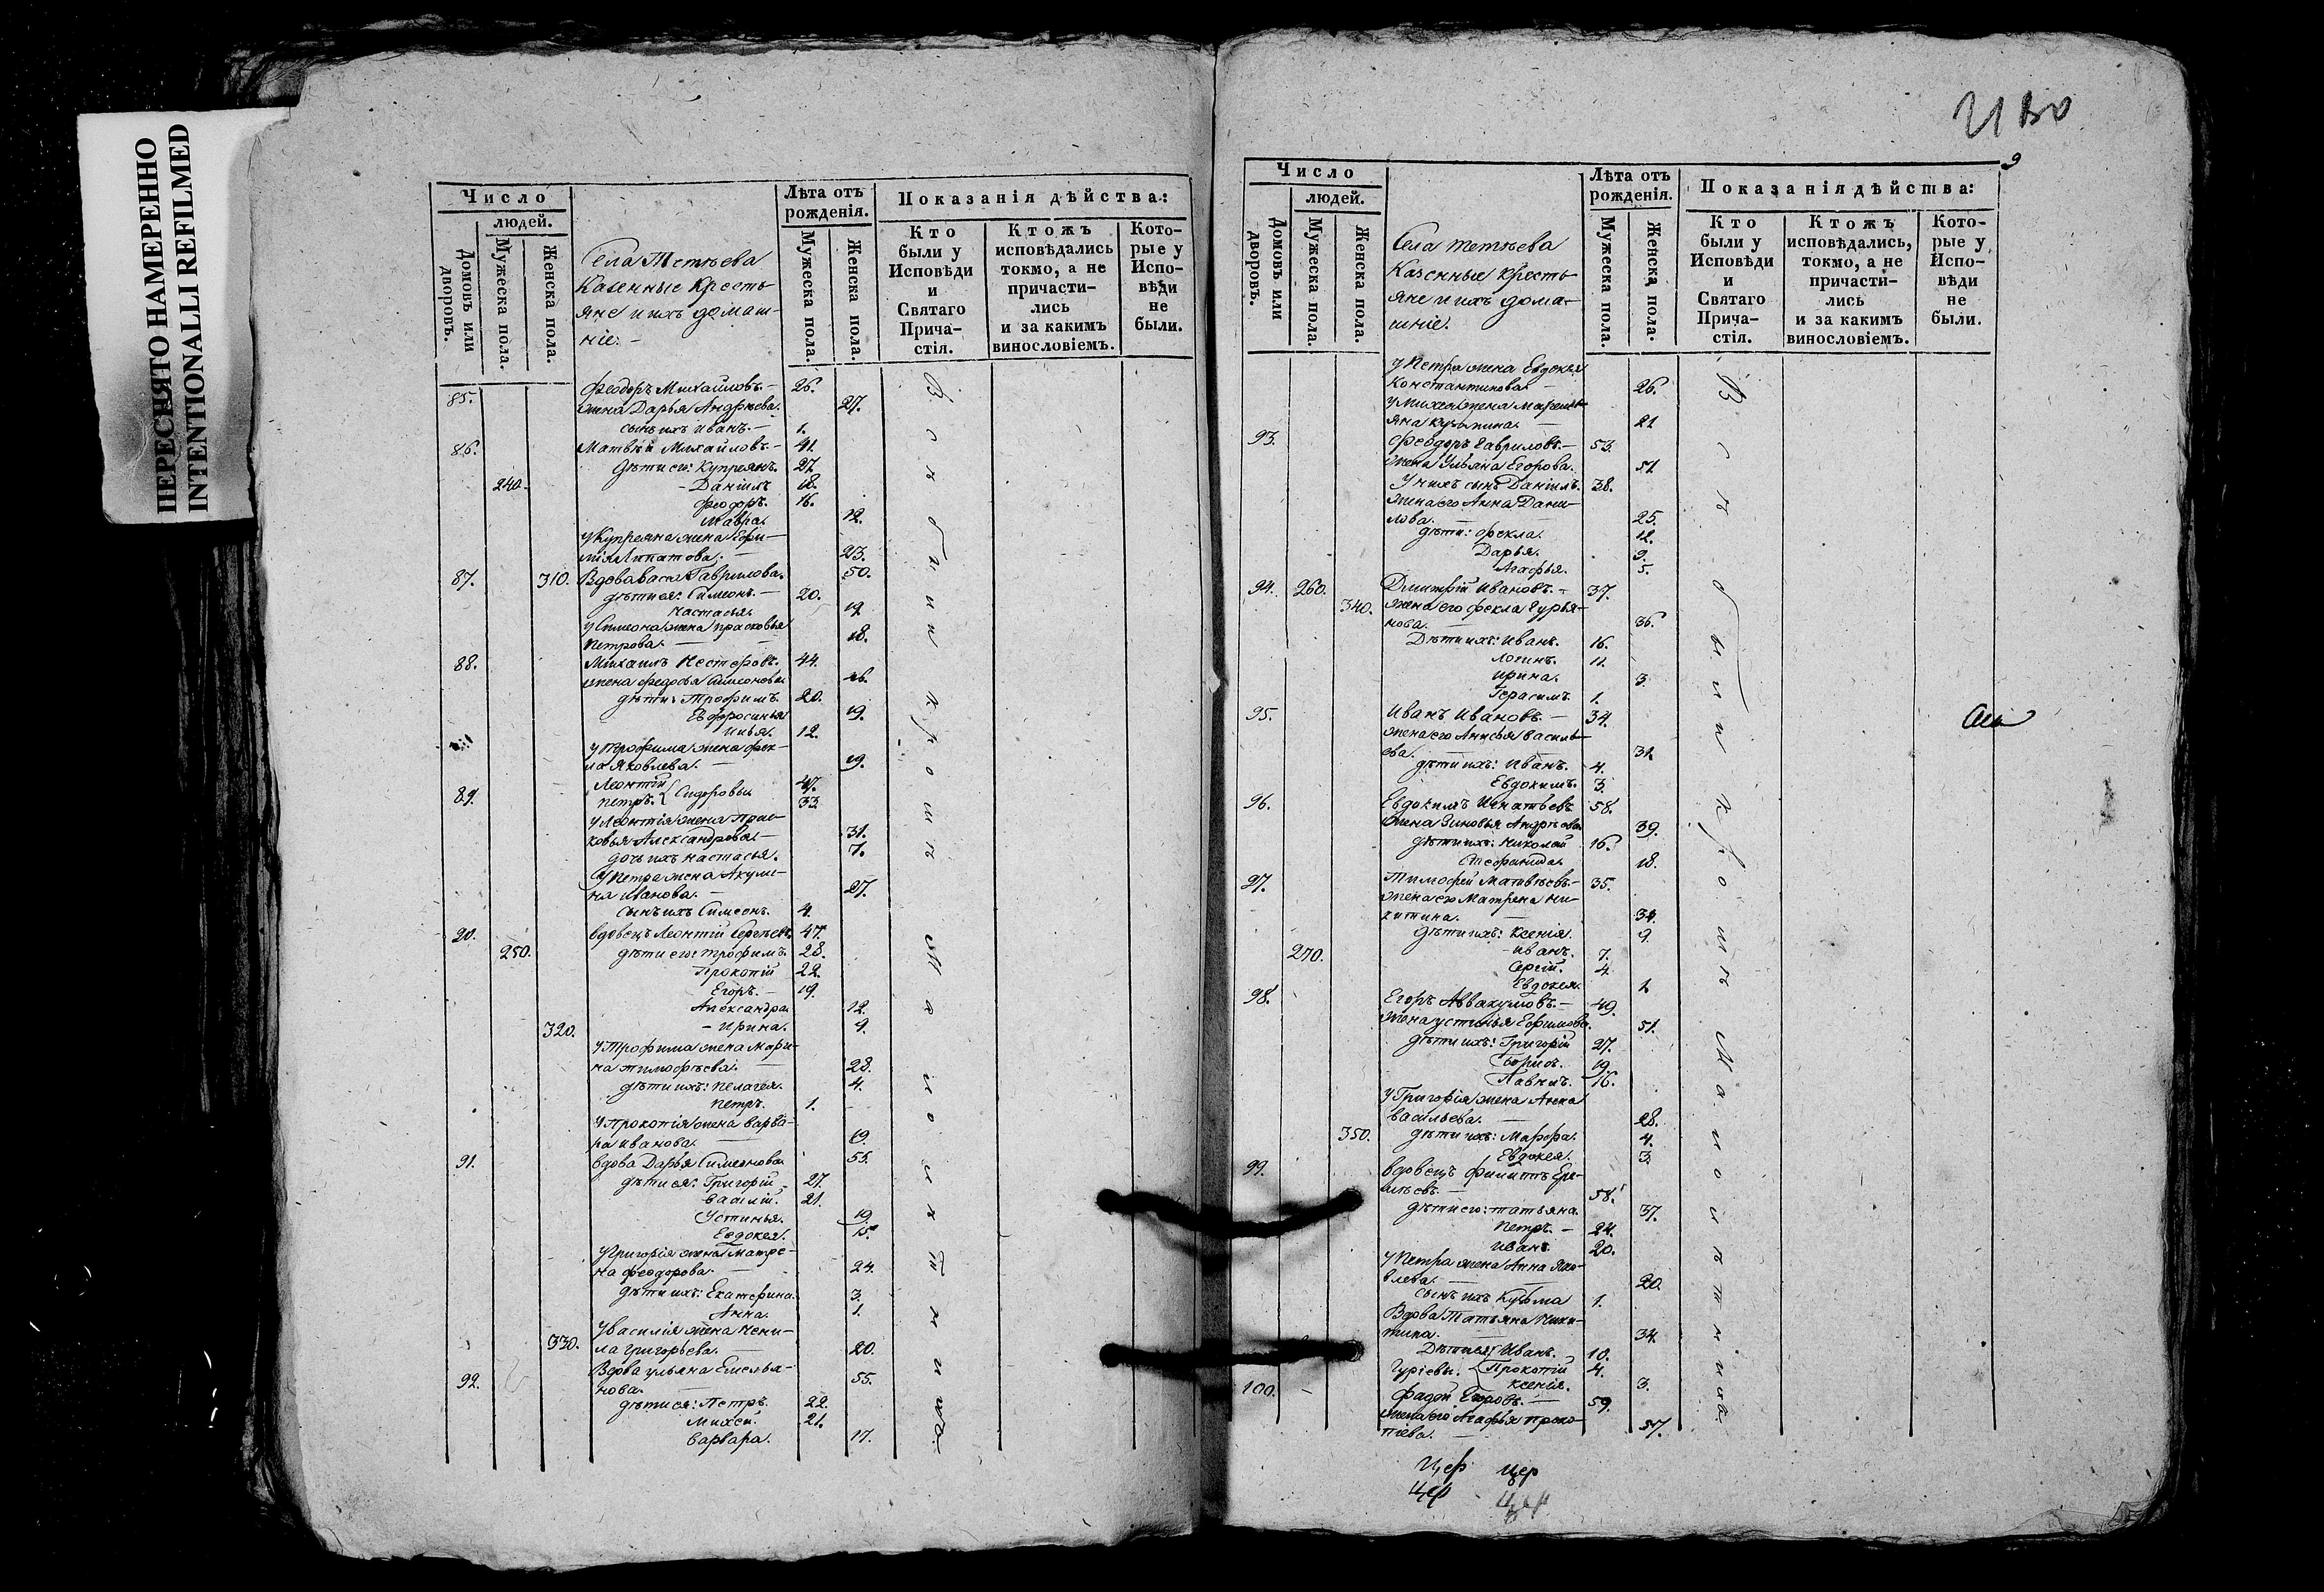 ПЕРЕСНЯТО НАМЕРЕННО
INTENTIONALLI REFILMED
Число
людей.
Домовъ или дворовъ.
Мужеска пола.
Женска пола.
Села Тетѣева
Казенные кресть-
яне и ихъ домаш-
ніе:
Лѣта отъ
рожденія.
Мужеска пола.
Женска пола.
Показанія дѣйства:
Кто
были у
Исповѣди
и
Святаго
Прича-
стія.
Ктожъ
исповѣдались
токмо, а не
причасти-
лись
и за какимъ
винословіемъ.
Кото-
рые у
Испо-
вѣди
не
были.
85. Феодоръ Михайловъ. 26.
жена Дарья Андрѣева. 27.
сынъ ихъ Иванъ. 1.
86. Матвѣй Михайловъ. 41.
дѣти его: Купреянъ. 27.
240. Даніилъ 18.
Феодоръ. 16.
Мавра. 12.
у Купреяна жена Евфи-
мія Липатова. 23.
87. 310. Вдова Васса Гаврилова. 50.
дѣти ея: Симеонъ. 20.
Настасья. 19.
у Симеона жена Прасковья
Петрова. 18.
88. Михаилъ Нестеровъ. 44.
жена Федосья Симеонова 46.
дѣти: Трофимъ. 20.
Евфросинья 19.
Илья. 12.
у Трофима жена Фек-
ла Яковлева. 19.
89. Леонтій 47.
Петръ. Сидоровы 33.
у Леонтія жена Прас-
ковья Александрова 31.
дочь ихъ Настасья. 7.
у Петра жена Акули-
на Иванова. 27.
сынъ ихъ Симеонъ. 4.
90. вдовецъ Леонтій Сергѣевъ 47.
250. дѣти его: Трофимъ. 28.
Прокопій 22.
Егоръ. 19.
Александра 12.
320. Ирина. 9.
у Трофима жена Мари-
на Тимофѣева. 28.
дѣти ихъ: Пелагея. 4.
Петръ. 1.
у Прокопія жена Варва-
ра Иванова. 19.
91. вдова Дарья Симеонова 55.
дѣти ея: Григорій 27.
Василій. 21.
Устинья. 19.
Евдокея. 15.
у Григорія жена Матре-
на Феодорова. 24.
дѣти ихъ: Екатерина. 3.
Анна. 1.
у Василія жена Нени-
330. ла Григорьева. 20.
92. Вдова Ульяна Емелья-
нова. 55.
дѣти ея: Петръ. 22.
Михей. 21.
Варвара. 17.
Всѣ были кромѣ малолѣтнихъ.
9
Число
людей.
Домовъ или дворовъ.
Мужеска пола.
Женска пола.
Села Тетѣева
Казенные кресть-
яне и ихъ дома-
шніе.
Лѣта отъ
рожденія.
Мужеска пола.
Женска пола.
Показанія дѣйства:
Кто
были у
Исповѣди
и
Святаго
Прича-
стія.
Ктожъ
исповѣдались,
токмо, а не
причасти-
лись
и за какимъ
винословіемъ.
Кото-
рые у
Испо-
вѣди
не
были.
у Петра жена Евдокея
Константинова. 26.
у Михея жена
Кузмина. 21
93. Феодоръ Гавриловъ. 53.
жена Ульяна Егорова. 51.
У нихъ сынъ Даніилъ. 38.
жена его Анна Дани-
лова. 25.
дѣти: Фекла. 12.
Дарья. 9.
Агафья. 5.
94. 260. Дмитрій Ивановъ. 37.
340. жена его Фекла Гурья-
нова. 36.
Дѣти ихъ: Иванъ. 16.
Логинъ. 11.
Ирина. 3.
Герасимъ 1.
95. Иванъ Ивановъ. 34.
жена его Анисья Василь-
ева. 31.
дѣти ихъ: Иванъ. 4.
Евдокимъ. 3.
96. Евдокимъ Игнатьевъ 58.
жена Зиновья Андрѣева 39.
дѣти ихъ: Николай 16.
Стефанида. 18.
97. Тимофей Матвѣевъ. 35.
жена его Матрена Ни-
китина. 34.
дѣти ихъ: Ксенія. 9.
270. Иванъ. 7.
Сергій. 4.
Евдокея. 1.
98. Егоръ Аввакумовъ. 49.
жена Устинья Ефимова. 51.
дѣти ихъ: Григорій 27.
Борисъ. 19.
Павелъ. 16.
у Григорія жена Анна
Васильева. 28.
350. дѣти ихъ: Марфа. 4.
Евдокея. 3.
99. вдовецъ Филиппъ
58.
дѣти его: Татьяна. 37.
Петръ. 24.
Иванъ 20.
у Петра жена Анна Яко-
влева. 20.
сынъ ихъ Кузьма 1.
Вдова Татьяна Ники-
тина. 34.
Дѣти ея Иванъ. 10.
Гуріевы. Прокопій 4.
Ксенія. 3.
100. Фадей Егоровъ. 59.
жена его Агафья Проко-
піева. 57.
Всѣ были кромѣ малолѣтнихъ
Цер Цер
Цер Цер